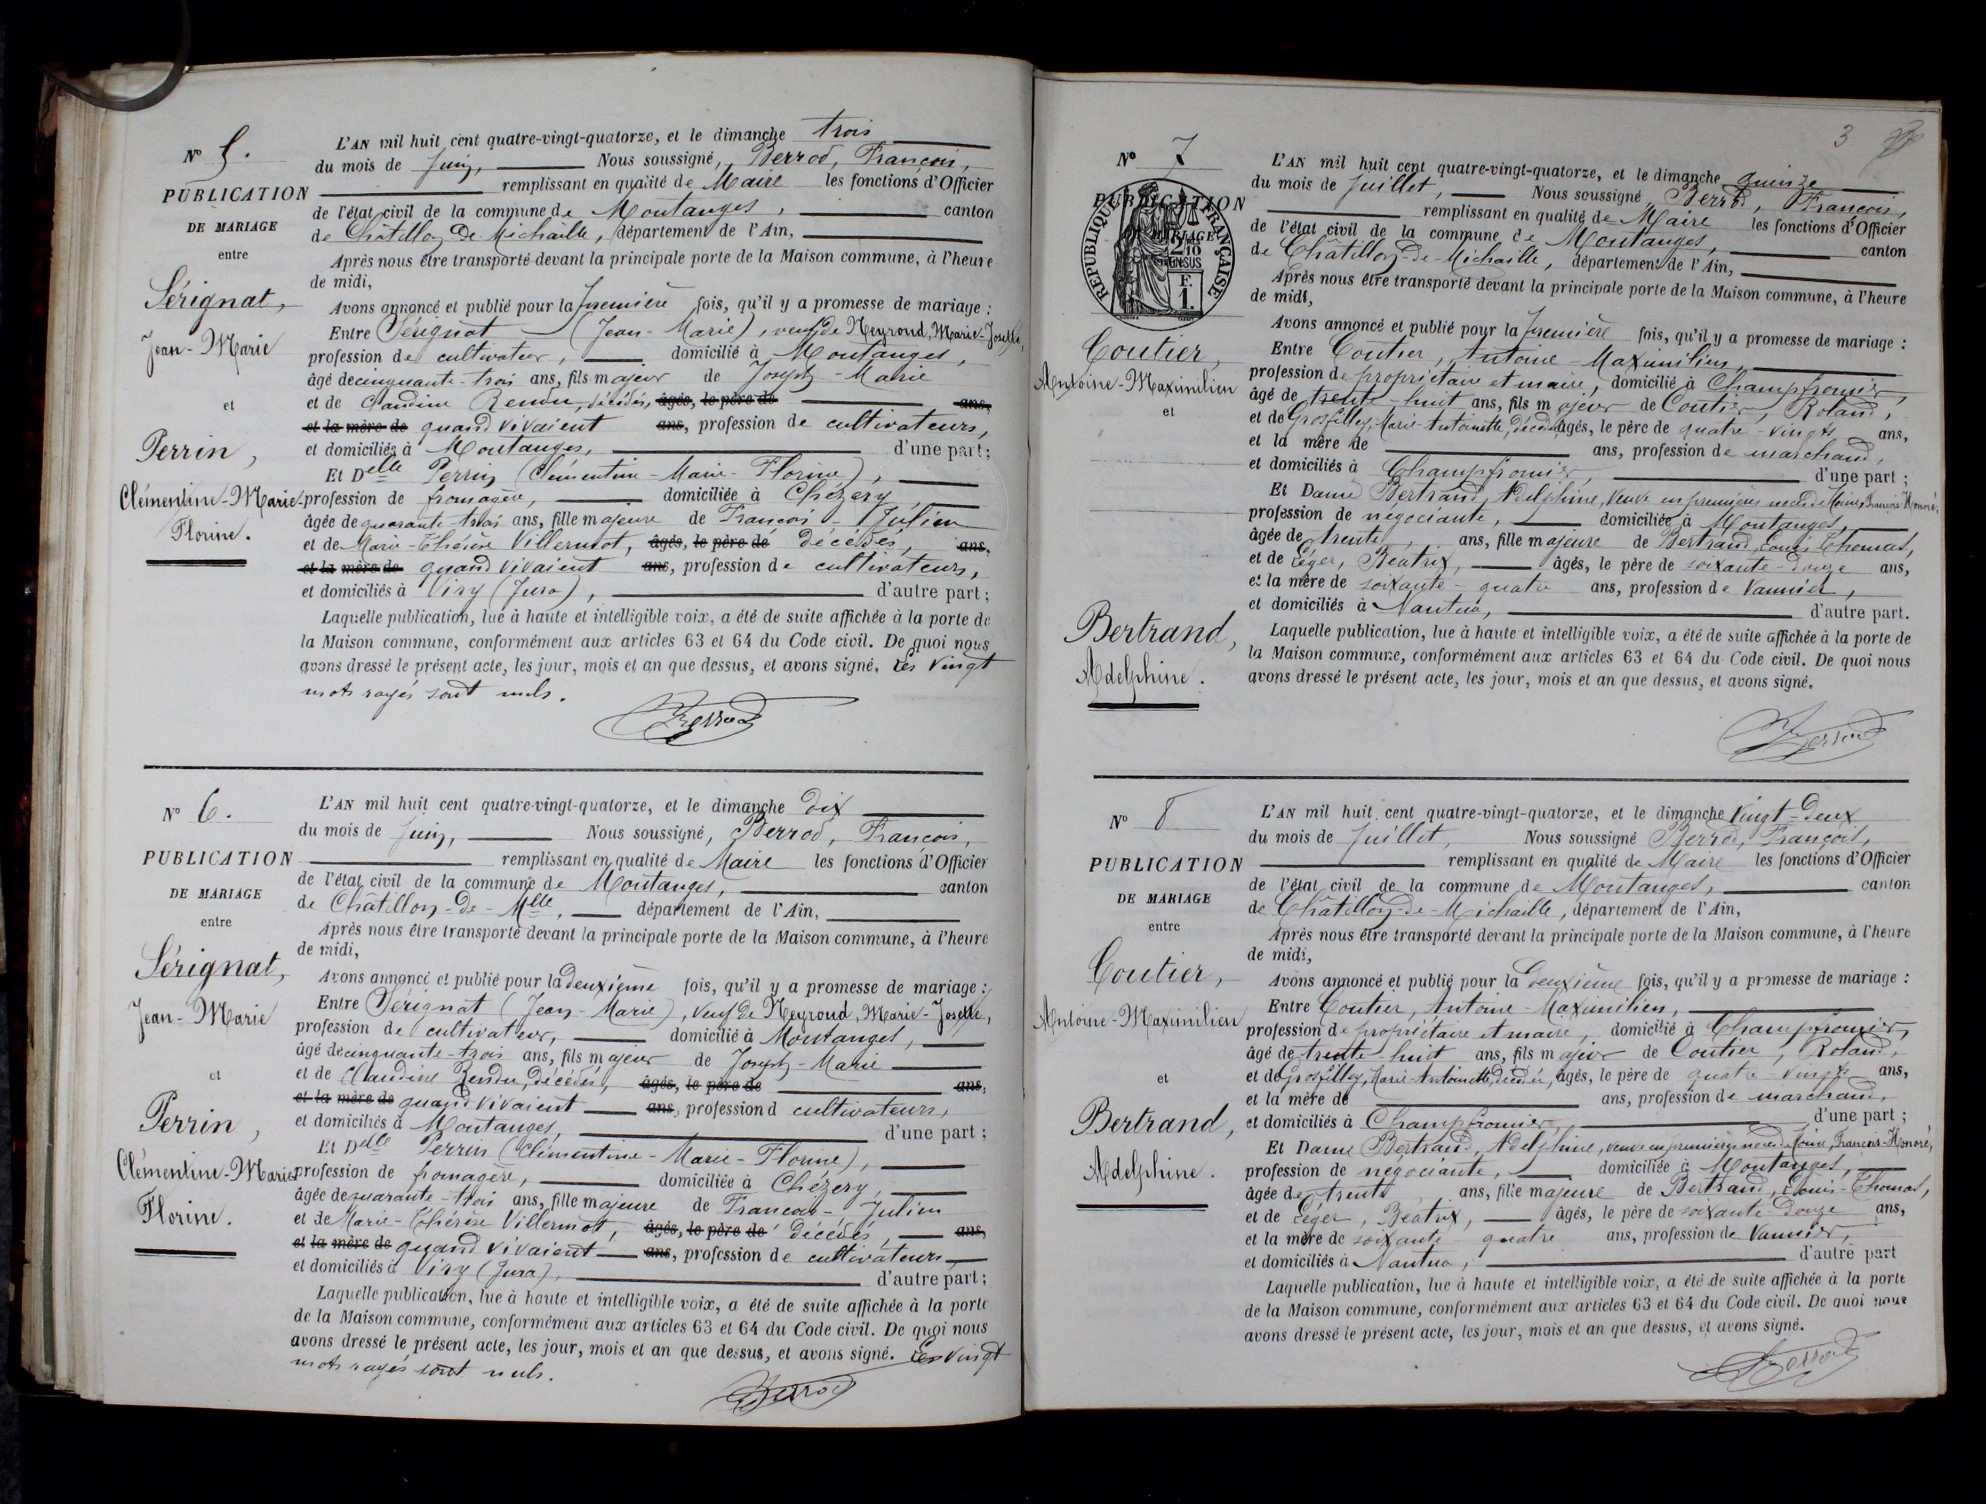 N° 5.
PUBLICATION
DE MARIAGE
entre
Sérignat,
Jean-Marie
et
Perrin,
Clémentine-Marie-
Florine.
L'AN mil huit cent quatre-vingt-quatorze, et le dimanche trois
du mois de Juin, Nous soussigné, Berrod, François,
remplissant en qualité de Maire les fonctions d'Officier
de l'état civil de la commune de Montanges, canton
de Châtillon-de-Michaille, département de l'Ain,
Après nous être transporté devant la principale porte de la Maison commune, à l'heure
de midi,
Avons annoncé et publié pour la première fois, qu'il y a promesse de mariage :
Entre Sérignat (Jean-Marie), veuf de Neyroud, Marie-Joselle,
profession de cultivateur, domicilié à Montanges,
âgé de cinquante-trois ans, fils majeur de Joseph-Marie
et de Claudine Rendu, décédés, âgés, le père de ans,
et la mère de quand vivaient ans, profession de cultivateurs,
et domiciliés à Montanges, d'une part;
Et Delle Perrin (Clémentine-Marie-Florine),
profession de fromagère, domiciliée à Chézery,
âgée de quarante-trois ans, fille majeure de François-Julien
et de Marie-Thérèse Villermot, âgés, le père de décédés, ans,
et la mère de quand vivaient ans, profession de cultivateurs,
et domiciliés à Viry (Jura), d'autre part;
Laquelle publication, lue à haute et intelligible voix, a été de suite affichée à la porte de
la Maison commune, conformément aux articles 63 et 64 du Code civil. De quoi nous
avons dressé le présent acte, les jour, mois et an que dessus, et avons signé. Les vingt
mots rayés sont nuls.
Berrod
N° 6.
PUBLICATION
DE MARIAGE
entre
Sérignat,
Jean-Marie
et
Perrin,
Clémentine-Marie-
Florine.
L'AN mil huit cent quatre-vingt-quatorze, et le dimanche dix
du mois de Juin, Nous soussigné, Berrod, François,
remplissant en qualité de Maire les fonctions d'Officier
de l'état civil de la commune de Montanges, canton
de Châtillon-de-Mlle, département de l'Ain,
Après nous être transporté devant la principale porte de la Maison commune, à l'heure
de midi,
Avons annoncé et publié pour la deuxième fois, qu'il y a promesse de mariage :
Entre Sérignat (Jean-Marie), veuf de Neyroud, Marie-Joselle,
profession de cultivateur, domicilié à Montanges,
âgé de cinquante-trois ans, fils majeur de Joseph-Marie
et de Claudine Rendu, décédés, âgés, le père de ans,
et la mère de quand vivaient ans, profession d cultivateurs,
et domiciliés à Montanges, d'une part;
Et Delle Perrin (Clémentine-Marie-Florine),
profession de fromagère, domiciliée à Chézery,
âgée de quarante-trois ans, fille majeure de François-Julien
et de Marie-Thérèse Villermot, âgés, le père de décédés, ans,
et la mère de quand vivaient ans, profession de cultivateurs,
et domiciliés à Viry (Jura), d'autre part;
Laquelle publication, lue à haute et intelligible voix, a été de suite affichée à la porte
de la Maison commune, conformément aux articles 63 et 64 du Code civil. De quoi nous
avons dressé le présent acte, les jour, mois et an que dessus, et avons signé. Les vingt
mots rayés sont nuls.
Berrod
3
N° 7
PUBLICATION
MARIAGE
RÉPUBLIQUE FRANÇAISE
2/10 EN SUS
F.
1.
Coutier,
Antoine-Maximilien
et
Bertrand,
Adelphine.
L'AN mil huit cent quatre-vingt-quatorze, et le dimanche quinze
du mois de Juillet, Nous soussigné, Berrod, François,
remplissant en qualité de Maire les fonctions d'Officier
de l'état civil de la commune de Montanges, canton
de Châtillon-de-Michaille, département de l'Ain,
Après nous être transporté devant la principale porte de la Maison commune, à l'heure
de midi,
Avons annoncé et publié pour la première fois, qu'il y a promesse de mariage :
Entre Coutier, Antoine-Maximilien,
profession de propriétaire et maire, domicilié à Champfromier,
âgé de trente-huit ans, fils majeur de Coutier, Roland,
et de Grosfilley, Marie-Antoinette, décédée, âgés, le père de quatre-vingts ans,
et la mère de ans, profession de marchand,
et domiciliés à Champfromier, d'une part;
Et Dame Bertrand, Adelphine, veuve en premières noces de Moine, François-Honoré,
profession de négociante, domiciliée à Montanges,
âgée de trente ans, fille majeure de Bertrand, Louis-Thomas,
et de Léger, Béatrix, âgés, le père de soixante-douze ans,
et la mère de soixante-quatre ans, profession de vannier,
et domiciliés à Nantua, d'autre part.
Laquelle publication, lue à haute et intelligible voix, a été de suite affichée à la porte de
la Maison commune, conformément aux articles 63 et 64 du Code civil. De quoi nous
avons dressé le présent acte, les jour, mois et an que dessus, et avons signé.
Berrod
N° 8
PUBLICATION
DE MARIAGE
entre
Coutier,
Antoine-Maximilien
et
Bertrand,
Adelphine.
L'AN mil huit cent quatre-vingt-quatorze, et le dimanche vingt-deux
du mois de Juillet, Nous soussigné Berrod, François,
remplissant en qualité de Maire les fonctions d'Officier
de l'état civil de la commune de Montanges, canton
de Châtillon-de-Michaille, département de l'Ain,
Après nous être transporté devant la principale porte de la Maison commune, à l'heure
de midi,
Avons annoncé et publié pour la deuxième fois, qu'il y a promesse de mariage :
Entre Coutier, Antoine-Maximilien,
profession de propriétaire et maire, domicilié à Champfromier,
âgé de trente-huit ans, fils majeur de Coutier, Roland,
et de Grosfilley, Marie-Antoinette, décédée, âgés, le père de quatre-vingts ans,
et la mère de ans, profession de marchand,
et domiciliés à Champfromier, d'une part;
Et Dame Bertrand, Adelphine, veuve en premières noces de Moine, François-Honoré,
profession de négociante, domiciliée à Montanges,
âgée de trente ans, fille majeure de Bertrand, Louis-Thomas,
et de Léger, Béatrix, âgés, le père de soixante-douze ans,
et la mère de soixante-quatre ans, profession de vannier,
et domiciliés à Nantua, d'autre part
Laquelle publication, lue à haute et intelligible voix, a été de suite affichée à la porte
de la Maison commune, conformément aux articles 63 et 64 du Code civil. De quoi nous
avons dressé le présent acte, les jour, mois et an que dessus, et avons signé.
Berrod